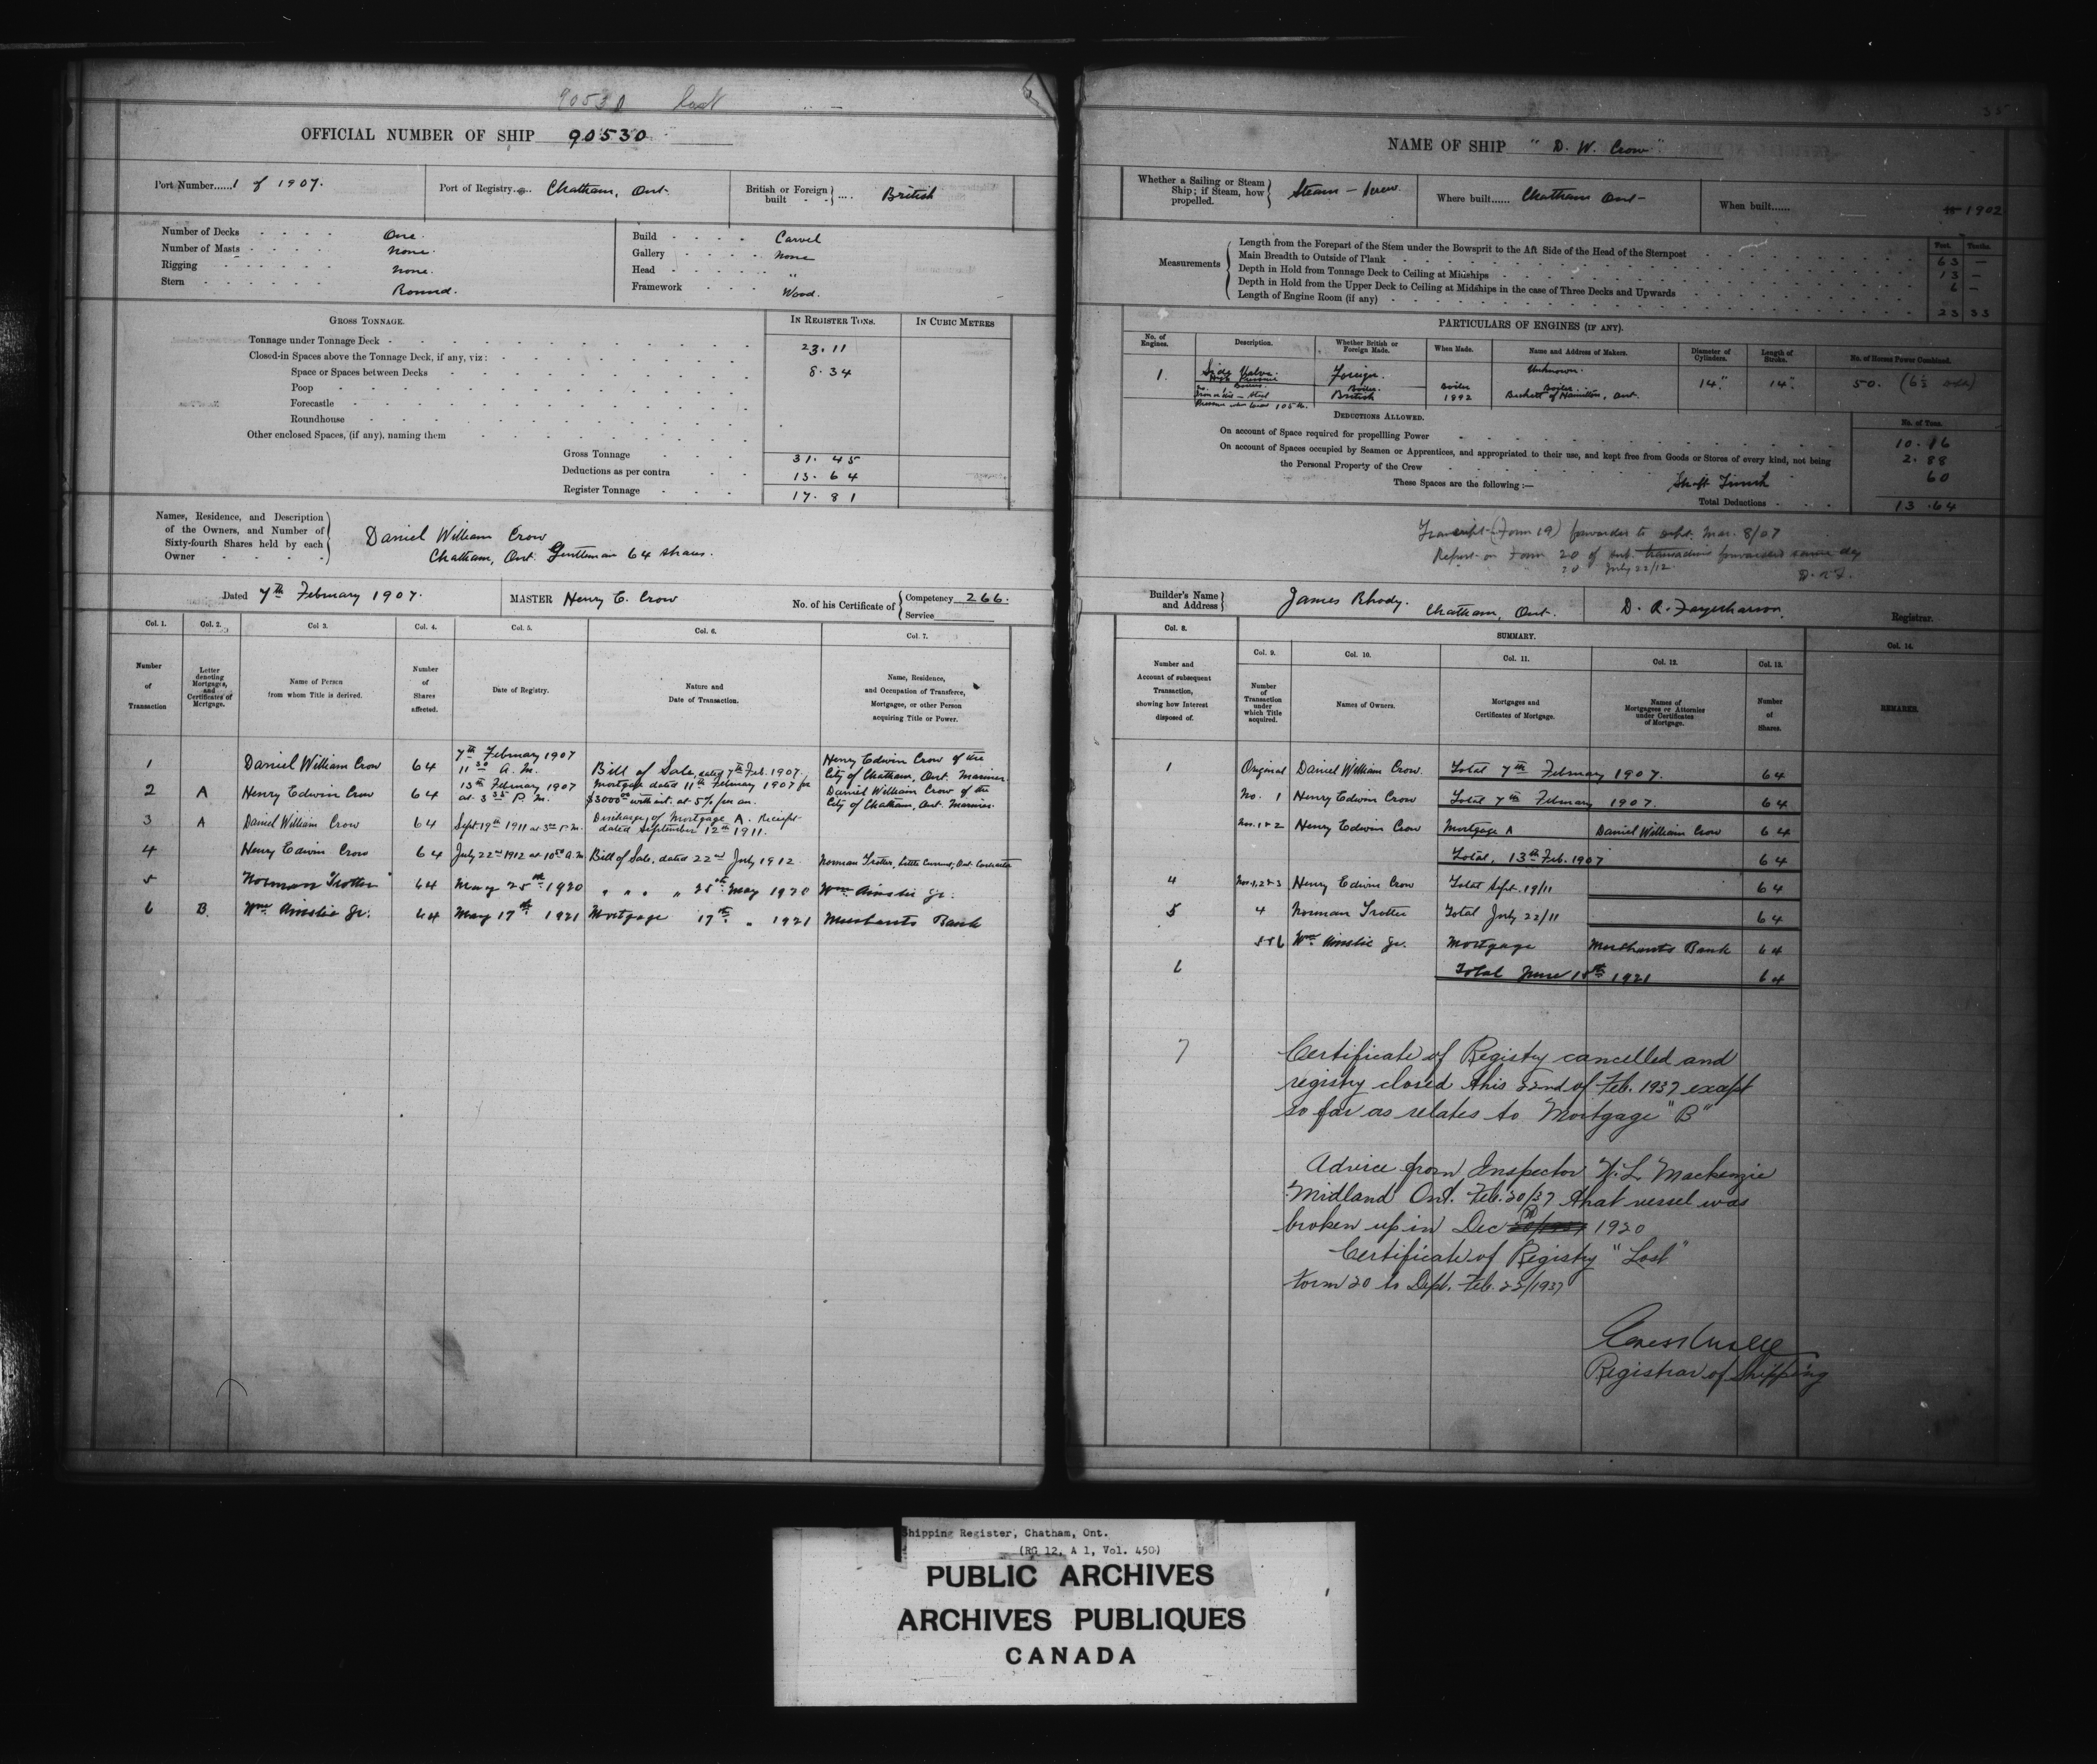 90530
OFFICIAL NUMBER OF SHIP 90530
Port Number......1 of 1907.
Port of Registry.... Chatham, Ont.
British or Foreign built .... British
Number of Decks One.
Number of Masts None
Rigging None.
Stern Round.
Build Carvel
Gallery None
Head "
Framework Wood.
GROSS TONNAGE.
IN REGISTER TONS.
IN CUBIC METRES
Tonnage under Tonnage Deck 23.11
Closed-in Spaces above the Tonnage Deck, if any, viz:
Space or Spaces between Decks 8.34
Poop
Forecastle
Roundhouse
Other enclosed Spaces, (if any), naming them
Gross Tonnage 31.45
Deductions as per contra 13.64
Register Tonnage 17.81
Names, Residence, and Description
of the Owners, and Number of
Sixty-fourth Shares held by each
Owner
Daniel William Crow
Chatham, Ont. Gentleman 64 shares.
Dated 7th February 1907.
MASTER Henry E. Crow
No. of his Certificate of Competency 266.
Service
Col. 1. Col. 2. Col 3. Col. 4. Col. 5. Col. 6. Col. 7.
Number of Transaction
Letter denoting Mortgages, and Certificates of Mortgage.
Name of Person from whom Title is derived.
Number of Shares affected.
Date of Registry.
Nature and Date of Transaction.
Name, Residence, and Occupation of Transferee, Mortgagee, or other Person acquiring Title or Power.
1 Daniel William Crow 64 7th February 1907 11 30 A.M. Bill of Sale, dated 7th Feb. 1907. Henry Edwin Crow of the City of Chatham, Ont. Mariner.
2 A Henry Edwin Crow 64 13th February 1907 at 3 35 P.M. Mortgage dated 11th February 1907 for $3000 00 with int. at 5% per an. Daniel William Crow of the City of Chatham, Ont. Mariner.
3 A Daniel William Crow 64 Sept 19th 1911 at P.M. Discharge of Mortgage A. Receipt dated September 12th 1911.
4 Henry Edwin Crow 64 July 22nd 1912 at 10 50 A.M Bill of Sale, dated 22nd July 1912 Norman Trotter, Little Current, Ont. Contractor
5 Norman Trotter 64 May 25th 1920 " " " " 25th May 1920 Wm Ainslie Jr.
6 B. Wm. Ainslie Jr. 64 May 17th 1921 Mortgage 17th " 1921 Merchants Bank
35
NAME OF SHIP "D. W. Crow"
Whether a Sailing or Steam
Ship; if Steam, how
propelled.
Steam - Screw.
Where built...... Chatham Ont-
When built...... 1902
Measurements
Feet. Tenths.
Length from the Forepart of the Stem under the Bowsprit to the Aft Side of the Head of the Sternpost 63 —
Main Breadth to Outside of Plank 13 —
Depth in Hold from Tonnage Deck to Ceiling at Midships 6 —
Depth in Hold from the Upper Deck to Ceiling at Midships in the case of Three Decks and Upwards
Length of Engine Room (if any) 23 33
PARTICULARS OF ENGINES (IF ANY).
No. of Engines.
Description.
Whether British or Foreign Made.
When Made.
Name and Address of Makers.
Diameter of Cylinders.
Length of Stroke.
No. of Horses Power Combined.
1. Slide Valve. High Pressure Foreign. Unknown. 14" 14". 50.
Boiler. British Boiler 1892 Boiler. Beckett of Hamilton, Ont.
DEDUCTIONS ALLOWED.
No. of Tons.
On account of Space required for propelling Power 10.16
On account of Spaces occupied by Seamen or Apprentices, and appropriated to their use, and kept free from Goods or Stores of every kind, not being
the Personal Property of the Crew 2.88
These Spaces are the following :— Shaft 60
Total Deductions 13.64
Transcript (Form 19) forwarded to dept. Mar. 8/07
Report on Form 20 of ent. transactions forwarded same day
20 July 22/12
Builder's Name and Address James Rhody. Chatham, Ont.
Registrar.
Col. 8. SUMMARY. Col. 14.
Col. 9. Col. 10. Col. 11. Col. 12. Col. 13.
Number and Account of subsequent Transaction, showing how Interest disposed of.
Number of Transaction under which Title acquired.
Names of Owners.
Mortgages and Certificates of Mortgage.
Names of Mortgagees or Attornies under Certificates of Mortgage.
Number of Shares.
REMARKS.
1 Original Daniel William Crow. Total 7th February 1907. 64
No. 1 Henry Edwin Crow Total 7th February 1907. 64
Nos. 1 & 2 Henry Edwin Crow Mortgage A Daniel William Crow 64
Total, 13th Feb. 1907 64
4 Nos. 1, 2 & 3 Henry Edwin Crow Total Sept. 19/11 64
5 4 Norman Trotter Total July 22/11 64
5 & 6 Wm. Ainslie Jr. Mortgage Merchants Bank 64
6 Total June 15th 1921 64
7 Certificate of Registry cancelled and
registry closed this 22nd of Feb. 1937 except
so far as relates to Mortgage "B"
Advice from Inspector N. L. Mackenzie
Midland Ont. Feb. 20/37 that vessel was
broken up in Dec 1920
Certificate of Registry "Lost"
Form 20 to Dept. Feb. 22/1937
Registrar of Shipping
Shipping Register, Chatham, Ont.
(RG 12, A 1, Vol. 450)
PUBLIC ARCHIVES
ARCHIVES PUBLIQUES
CANADA